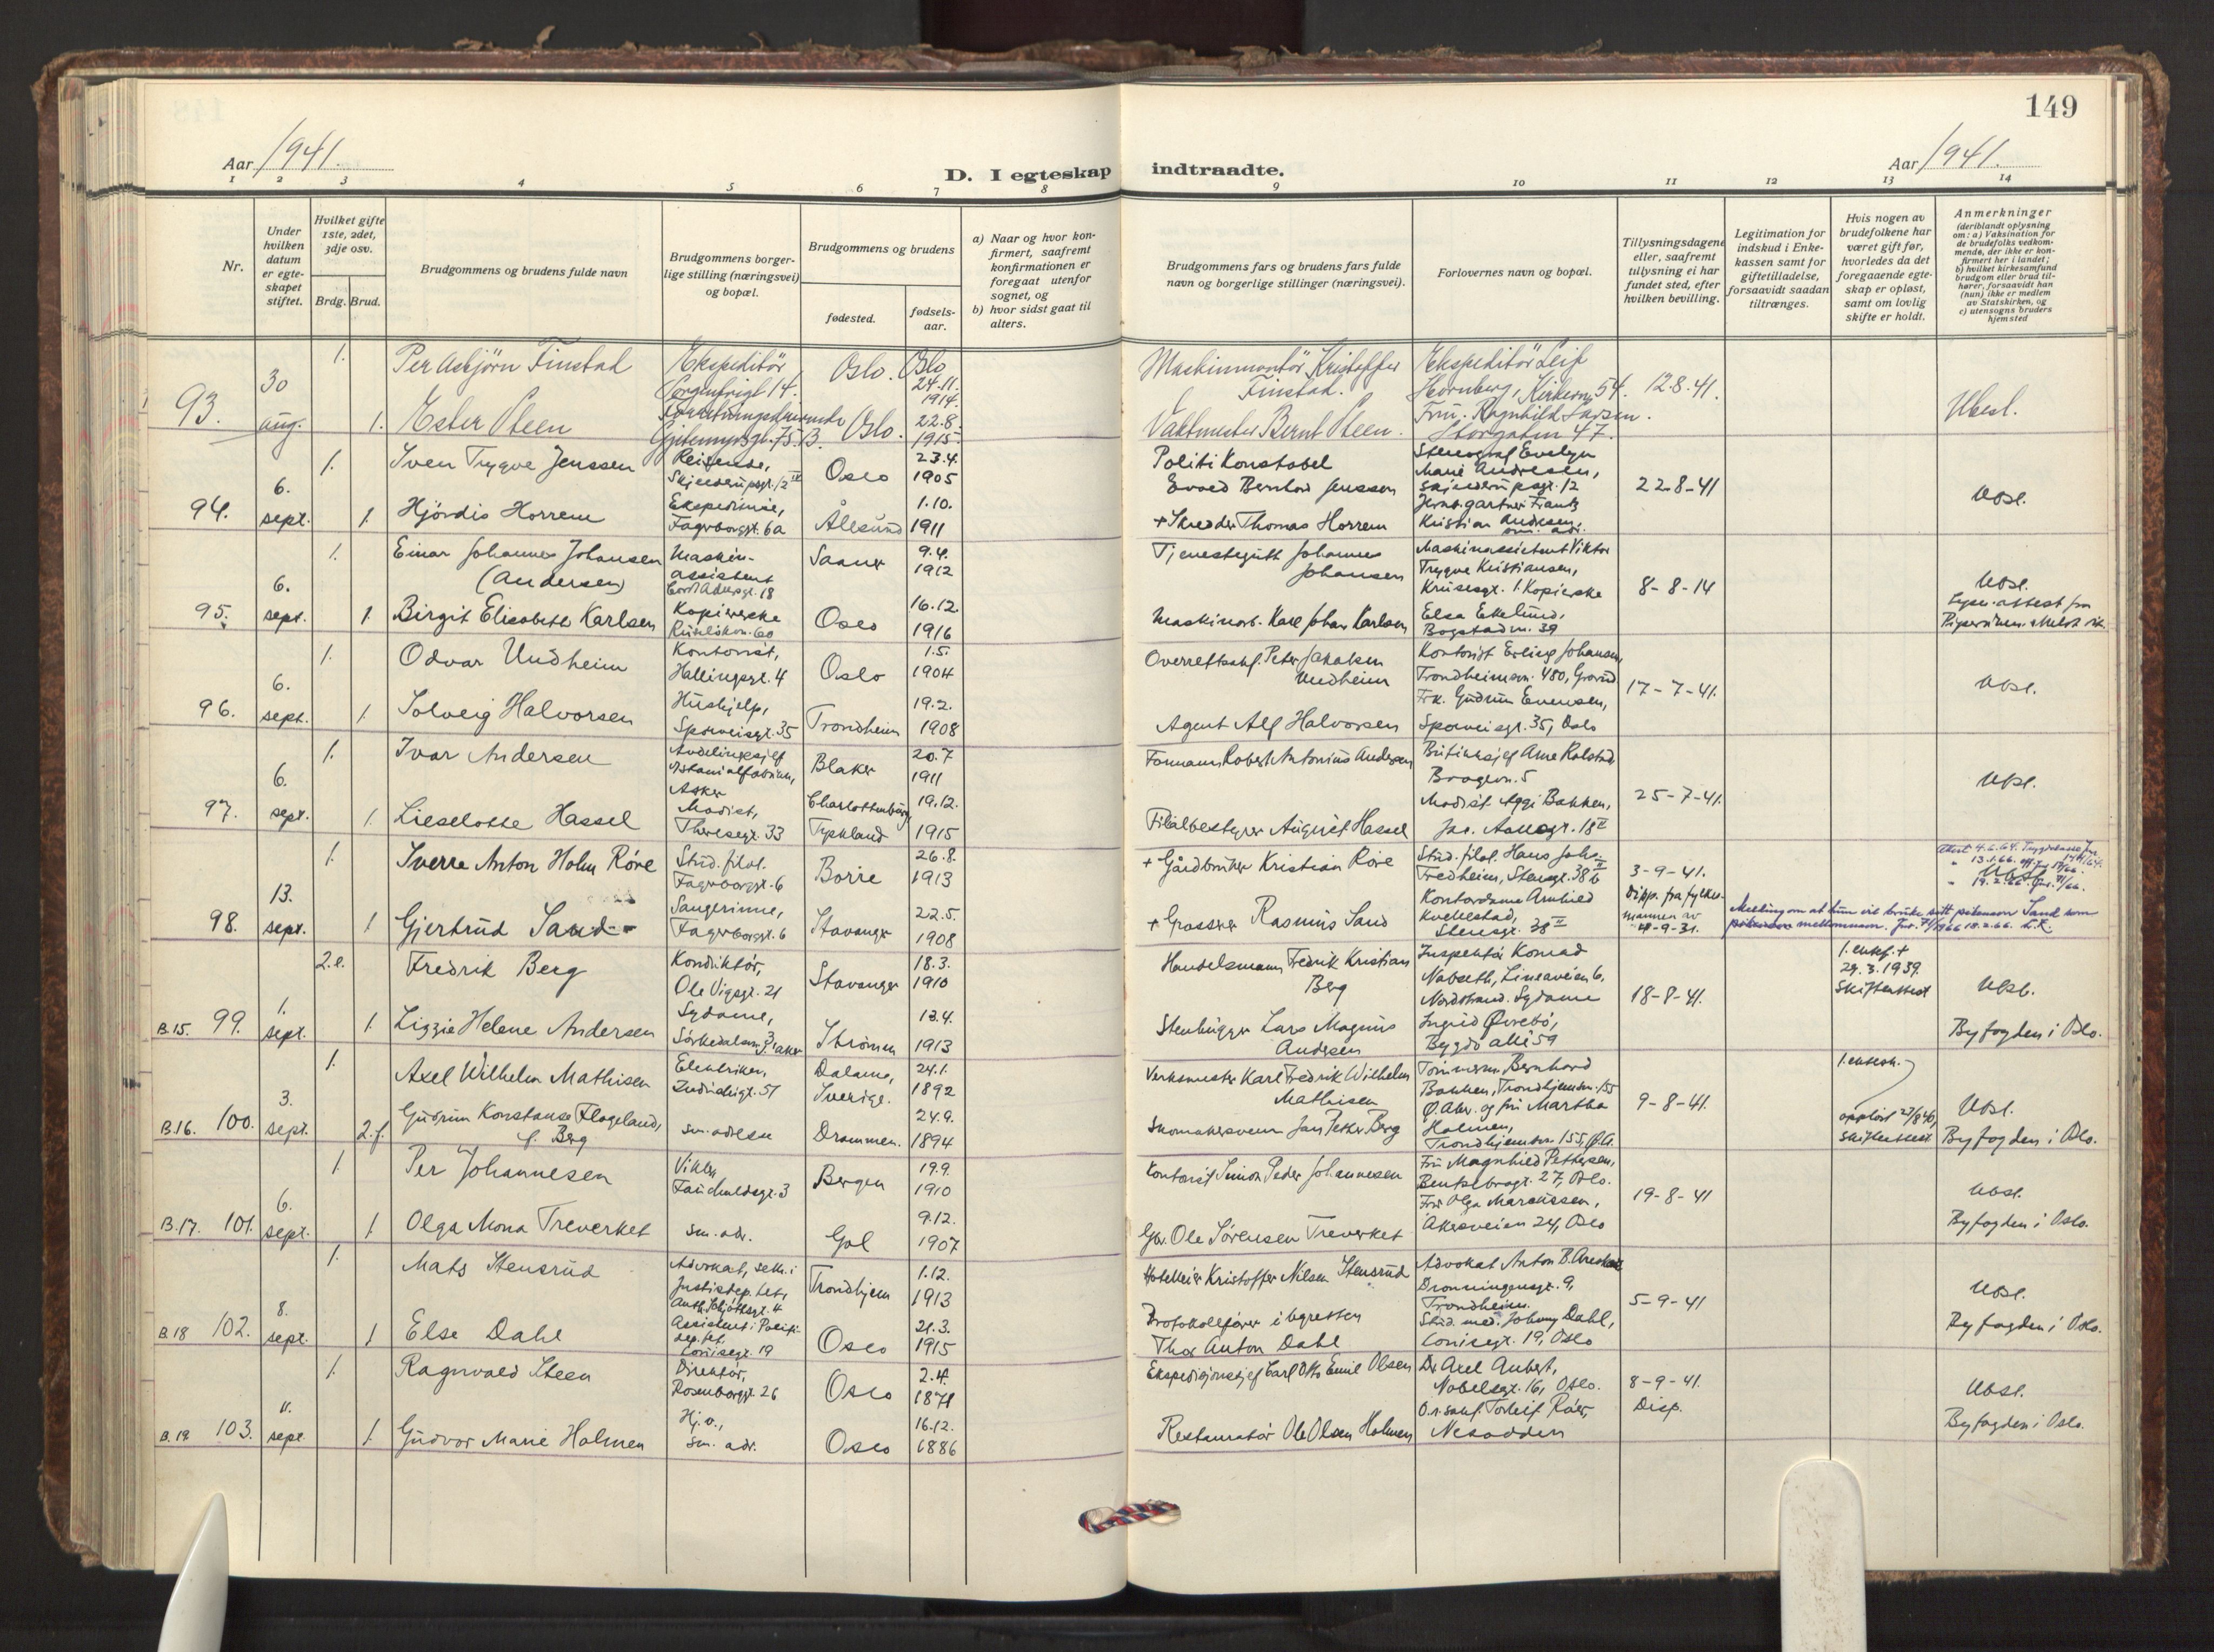 149
Aar 1941.
D. I egteskap indtraadte.
Aar 1941.
1 2 3 4 5 6 7 8 9 10 11 12 13 14
Nr.
Under hvilken datum er egte-skapet stiftet.
Hvilket gifte 1ste, 2det, 3dje osv.
Brdg. Brud.
Brudgommens og brudens fulde navn
Brudgommens borger-lige stilling (næringsvei) og bopæl.
Brudgommens og brudens
fødested.
fødsels-aar.
a) Naar og hvor kon-firmert, saafremt konfirmationen er foregaat utenfor sognet, og
b) hvor sidst gaat til alters.
Brudgommens fars og brudens fars fulde navn og borgerlige stillinger (næringsvei).
Forlovernes navn og bopæl.
Tillysningsdagene eller, saafremt tillysning ei har fundet sted, efter hvilken bevilling.
Legitimation for indskud i Enke-kassen samt for giftetilladelse, forsaavidt saadan tiltrænges.
Hvis nogen av brudefolkene har været gift før, hvorledes da det foregaaende egte-skap er opløst, samt om lovlig skifte er holdt.
Anmerkninger (deriblandt oplysning om: a) Vaksination for de brudefolks vedkom-mende, der ikke er kon-firmert her i landet; b) hvilket kirkesamfund brudgom eller brud til-hører, forsaavidt han (hun) ikke er medlem av Statskirken, og c) utensogns bruders hjemsted
93. 30 aug.
1. Per Asbjörn Finstad Ekspeditör Sorgenfrigt 14. Oslo. Oslo 24.11. 1914 Maskinmontör Kristoffer Finstad. Ekspeditör Leif Hornberg, Kirkevn 54. 12.8.41.
1. Ester Steen Forretningsdrivende Gjetemyrsgt. 75 B. Oslo. 22.8. 1915. Vaktmester Bernt Steen. Fru Ragnhild Larsen. Storgaten 47. Ubesl.
94. 6. sept.
1. Sven Trygve Jenssen Reisende, Skjelderupsgt. 12 IV Oslo 23.4. 1905 Politi Konstabel Evald Bernhard Jenssen Stenograf Evelyn Marie Andresen, Skjelderupsgt. 12 22-8-41
1. Hjördis Horrem Ekspeditrise, Fagerborggt. 6a Ålesund 1.10. 1911 + Skredder Thomas Horrem Jernb.gartner Frantz Kristian Andresen, sm. adr. Ubsl.
95. 6. sept.
1. Einar Johannes Johansen (Andersen) Maskin-assistent Cort Adelersgt. 18 Saaner 9.4. 1912 Tjenestegutt Johannes Johansen Maskinassistent Viktor Trygve Kristiansen, Krusesgt. 1. Kopierske 8-8-14
1. Birgit Elisabeth Karlsen Kopierske Oslo 16.12. 1916 Maskinarb. Karl Johan Karlsen Elsa Ekelund, Bogstadvn. 39 Ubsl.
96. 6. sept.
1. Odvar Undheim Kontorist, Hallingsgt. 4 Oslo 1.5. 1904 Overrettssakf. Peter Jakobsen Undheim Kontorist Erling Johansen, Trondheimsvn. 480, Grorud 17-7-41.
1. Solveig Halvorsen Hushjelp, Sporveisgt. 35 Trondheim 19.2. 1908 Agent Alf Halvorsen Frk. Gudrun Evensen, Sporveisgt. 35, Oslo Ubsl.
97. 6. sept.
1. Ivar Andersen Avdelingssjef Asker Blaker 20.7 1911 Formann Robert Antonius Andersen Butikksjef Arne Rolstad Bragevn. 5 25-7-41.
1. Lieselotte Hassel Modist, Theresegt. 33 Charlottenburg Tyskland 19.12. 1915 Filialbestyrer August Hassel Modist Aggi Bakken, Jac. Aallsgt. 18 II Ubsl.
98. 13. sept.
1. Sverre Anton Holm Röre Stud. filol. Fagerborggt. 6 Borre 26.8. 1913 + Gårdbruker Kristian Röre Stud. filol. Hans Johs. Fredheim, Stensgt. 38 b 3-9-41.
1. Gjertrud Sand Sangerinne, Fagerborggt. 6 Stavanger 22.5. 1908 + Grosserer Rasmus Sand Kontordame Arnhild Kvellestad, Stensgt. 38 II Disp. fra fylkesmannen av 4-9-31.
Melding om at hun vil bruke sitt pikenavn Sand som mellomnavn.
B.15. 99. 1. sept.
2.e. Fredrik Berg Konduktör, Ole Vigsgt. 21 Stavanger 18.3. 1910 Handelsmann Fredrik Kristian Berg Inspektör Konrad Nabseth, Lineaveien 6, Nordstrand. Sydame 18-8-41. 1. ektsk. + 29.3.1939. Skifteattest Ubsl.
1. Lizzie Helene Andersen Sydame, Strömmen 13.4. 1913 Stenhugger Lars Magnus Andersen Ingrid Øvrebö, Bygdö allé 59 Byfogden i Oslo.
B.16. 100. 3. sept.
1. Axel Wilhelm Mathisen Elektriker, Dalarne, Sverige. 24.1. 1892 Verksmester Karl Fredrik Wilhelm Mathisen Tömmerm. Bernhard Bakken, Trondhjemsvn. 155 Ø. Aker. og fru Martha Holmen, Trondhjemsvn. 155, Ø.A. 9-8-41. 1. ektesk.
2.f. Gudrun Konstanse Flageland, f. Berg sm. adresse Drammen. 24.9. 1894 Skomakersvenn Jan Peter Berg opplöst 27/8 40, skifteattest Ubsl. Byfogden i Oslo.
B.17. 101. 6. sept.
1. Per Johannesen Fauchaldsgt. 3 Bergen 19.9. 1910 Kontorist Simon Peder Johannesen Fru Magnhild Pettersen, Bentsebrogt. 27, Oslo. 19-8-41
1. Olga Mona Treverket sm. adr. Gol 9.12. 1907 Gbr. Ole Sørensen Treverket Fru Olga Marcussen, Akersveien 24, Oslo Ubsl. Byfogden i Oslo.
B.18 102. 8. sept.
1. Mats Stensrud Advokat, sekr. i Justisdep.tet, Anth. Schjöthsgt. 4 Trondhjem 1.12. 1913 Hotelleier Kristoffer Nilsen Stensrud Advokat Anton B. Dronningensgt. 9, Trondheim. 5-9-41
1 Else Dahl Assistent i Politidep.tet, Louisegt. 19 Oslo 21.3. 1915 Protokollfører i bgretten Thor Anton Dahl Stud. med. Johnny Dahl, Louisegt. 19, Oslo Ubsl. Byfogden i Oslo.
B.19 103. 11. sept.
1. Ragnvald Steen Direktör, Rosenborggt. 26 Oslo 2.4. 1871 Ekspedisjonssjef Carl Otto Emil Olsen Dr. Axel Aubert, Nobelsgt. 16, Oslo. 8-9-41. Disp.
1. Gudvor Marie Holmen Hj.v., sm. adr. Oslo 16.12. 1886 Restauratör Ole Olsen Holmen O.r.sakf. Torleif Röer, Nesodden Ubsl. Byfogden i Oslo.